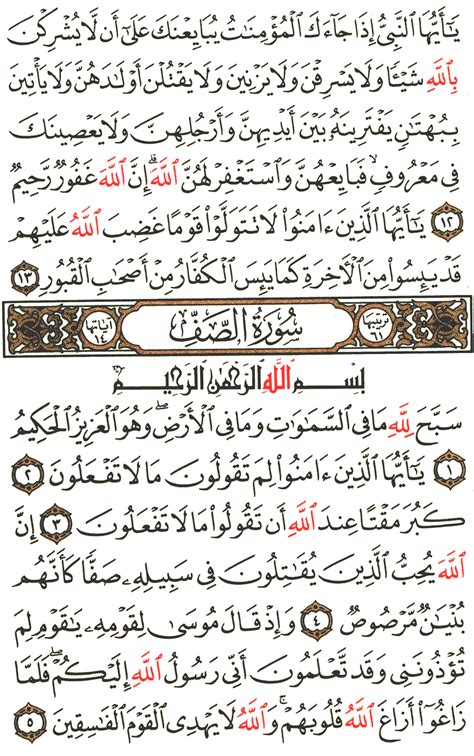 يَٰٓأَيُّهَا ٱلنَّبِيُّ إِذَا جَآءَكَ ٱلْمُؤْمِنَٰتُ يُبَايِعْنَكَ عَلَىٰٓ أَن لَّا يُشْرِكْنَ
بِٱللَّهِ شَيْـًٔا وَلَا يَسْرِقْنَ وَلَا يَزْنِينَ وَلَا يَقْتُلْنَ أَوْلَٰدَهُنَّ وَلَا يَأْتِينَ
بِبُهْتَٰنٍ يَفْتَرِينَهُۥ بَيْنَ أَيْدِيهِنَّ وَأَرْجُلِهِنَّ وَلَا يَعْصِينَكَ
فِى مَعْرُوفٍ ۙ فَبَايِعْهُنَّ وَٱسْتَغْفِرْ لَهُنَّ ٱللَّهَ ۖ إِنَّ ٱللَّهَ غَفُورٌ رَّحِيمٌ
١٢ يَٰٓأَيُّهَا ٱلَّذِينَ ءَامَنُوا۟ لَا تَتَوَلَّوْا۟ قَوْمًا غَضِبَ ٱللَّهُ عَلَيْهِمْ
قَدْ يَئِسُوا۟ مِنَ ٱلْءَاخِرَةِ كَمَا يَئِسَ ٱلْكُفَّارُ مِنْ أَصْحَٰبِ ٱلْقُبُورِ ١٣
ترتيبها ٦١ سُورَةُ الصَّفِّ آياتها ١٤
بِسْمِ ٱللَّهِ ٱلرَّحْمَٰنِ ٱلرَّحِيمِ
سَبَّحَ لِلَّهِ مَا فِى ٱلسَّمَٰوَٰتِ وَمَا فِى ٱلْأَرْضِ ۖ وَهُوَ ٱلْعَزِيزُ ٱلْحَكِيمُ
١ يَٰٓأَيُّهَا ٱلَّذِينَ ءَامَنُوا۟ لِمَ تَقُولُونَ مَا لَا تَفْعَلُونَ ٢
كَبُرَ مَقْتًا عِندَ ٱللَّهِ أَن تَقُولُوا۟ مَا لَا تَفْعَلُونَ ٣ إِنَّ
ٱللَّهَ يُحِبُّ ٱلَّذِينَ يُقَٰتِلُونَ فِى سَبِيلِهِۦ صَفًّا كَأَنَّهُم
بُنْيَٰنٌ مَّرْصُوصٌ ٤ وَإِذْ قَالَ مُوسَىٰ لِقَوْمِهِۦ يَٰقَوْمِ لِمَ
تُؤْذُونَنِى وَقَد تَّعْلَمُونَ أَنِّى رَسُولُ ٱللَّهِ إِلَيْكُمْ ۖ فَلَمَّا
زَاغُوٓا۟ أَزَاغَ ٱللَّهُ قُلُوبَهُمْ ۚ وَٱللَّهُ لَا يَهْدِى ٱلْقَوْمَ ٱلْفَٰسِقِينَ ٥